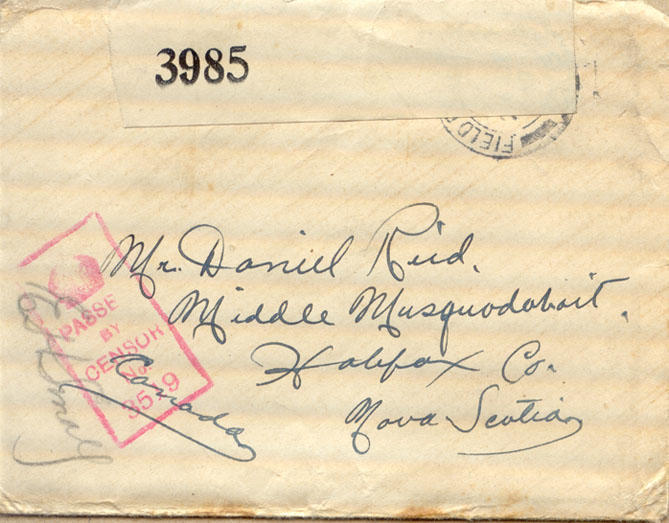 3985
FIELD
Mr. Daniel Reid.
Middle Musquodoboit.
Halifax Co.
Nova Scotia
Canada
PASSED
BY
CENSOR
No.
3519